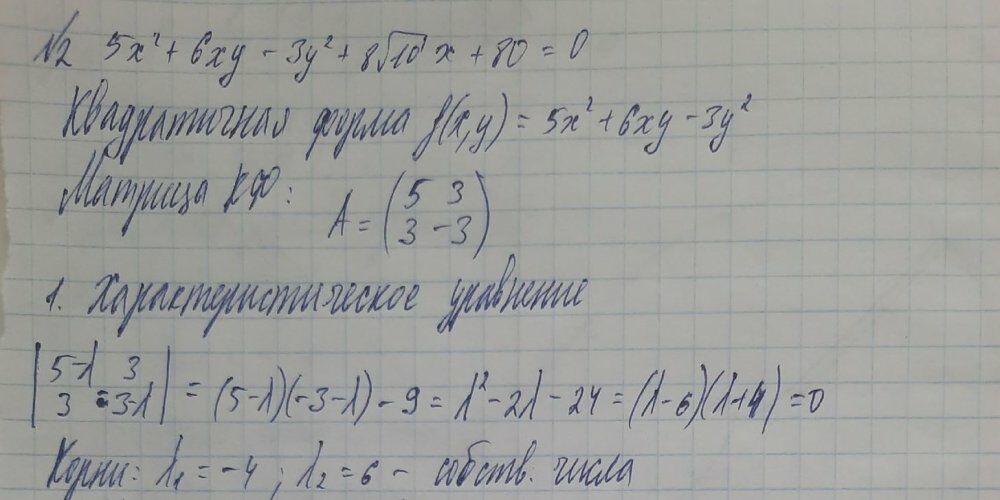 №2 5x² + 6xy - 3y² + 8√10 x + 80 = 0
Квадратичная форма f(x,y) = 5x² + 6xy - 3y²
Матрица КФ: A = (5 3
3 -3)
1. Характеристическое уравнение
|5-λ 3
3 -3-λ| = (5-λ)(-3-λ) - 9 = λ² - 2λ - 24 = (λ-6)(λ+4) = 0
Корни: λ₁ = -4 ; λ₂ = 6 - собств. числа